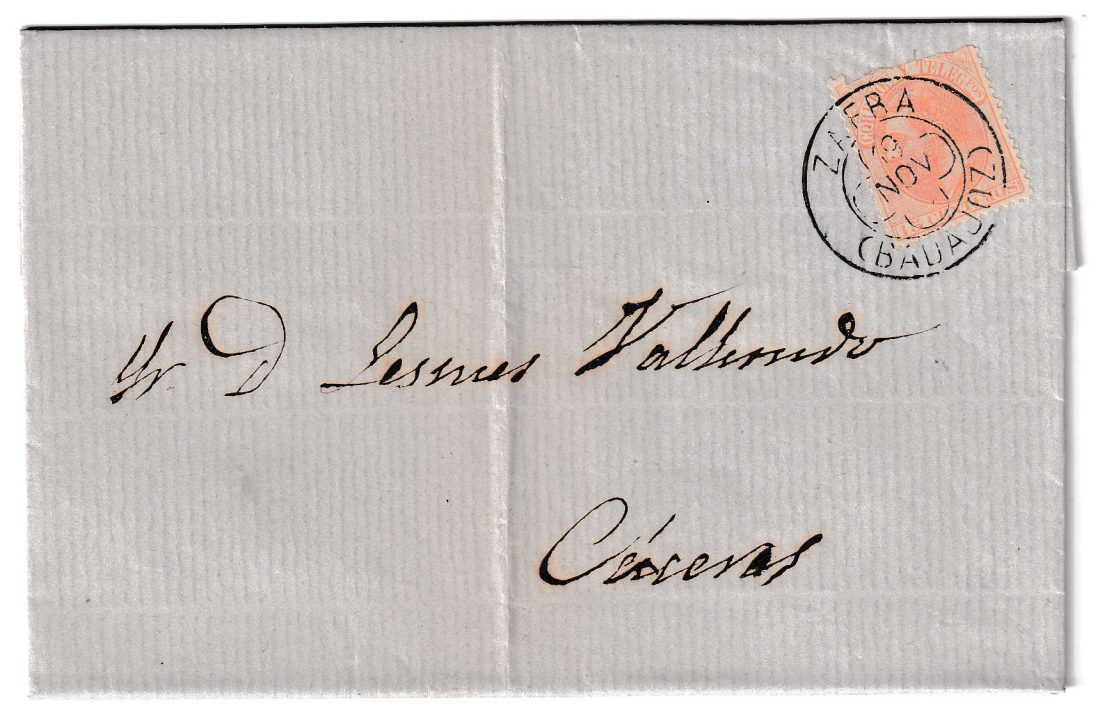 CORREOS Y TELEGFOS
ZAFRA
9
NOV
(BADAJOZ)
Sr. D Lesmes Valhondo
Cáceres